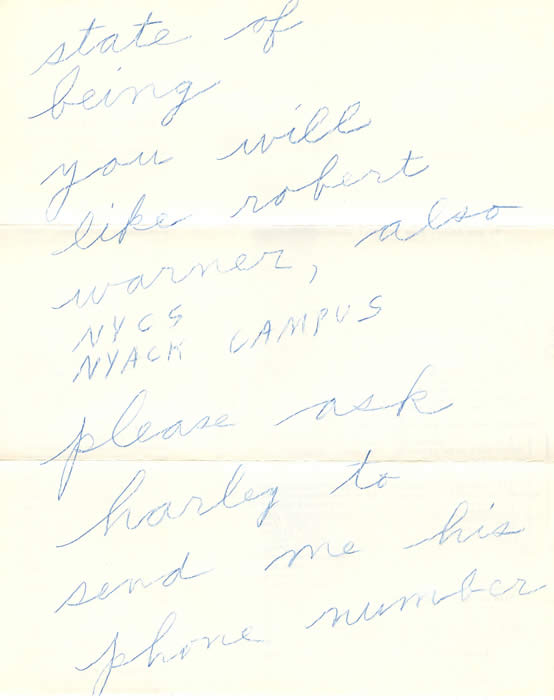 state of
being
you will
like robert
warner, also
NYCS
NYACK CAMPUS
please ask
harley to
send me his
phone number